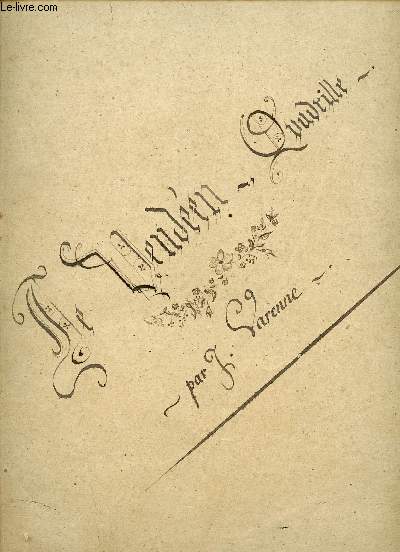 Le-livre.com
Le Vendéen. ~ Quadrille ~
~ par J. Varenne ~